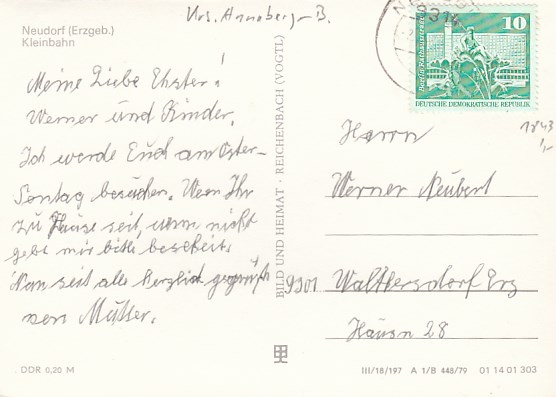 Krs. Annaberg-B.
Neudorf (Erzgeb.)
Kleinbahn
Meine Liebe
Werner und Kinder,
Ich werde Euch am Oster-
Sontag besuchen. Wen Ihr
zu Hause seit, wenn nicht
gebt mir bitte bescheit.
Nun seit alle herzlich gegrüßt
von Mutter.
DDR 0,20 M
BILD UND HEIMAT · REICHENBACH (VOGTL)
9314
10
DEUTSCHE DEMOKRATISCHE REPUBLIK
1843
Herrn
Werner Neubert
9301 Walthersdorf Erz
Hausn 28
III/18/197 A 1/B 448/79 01 14 01 303